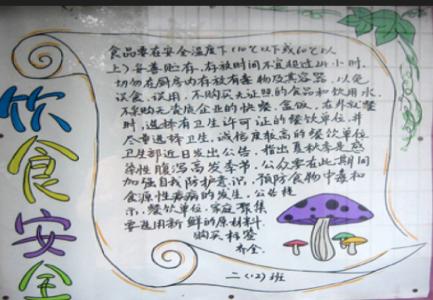 饮食安全
食品要在安全温度下(10℃以下或60℃以
上)妥善贮存,存放时间不宜超过24小时.
切勿在厨房内存放有毒物及其容器,以免
误食、误用,不购买无证照的食品和饮用水,
不采购无资质企业的快餐、盒饭。在外就餐
时,选择有卫生许可证的餐饮单位,并
尽量选择卫生、诚信度较高的餐饮单位
卫生部近日发出公告,指出夏秋季是感
染性腹泻高发季节.公众要在此期间
加强自我防护意识,预防食物中毒和
食源性疾病的发生.公告提
示,餐饮单位、家庭聚集
要选用新鲜的原材料.
购买标签
齐全.
二(12)班